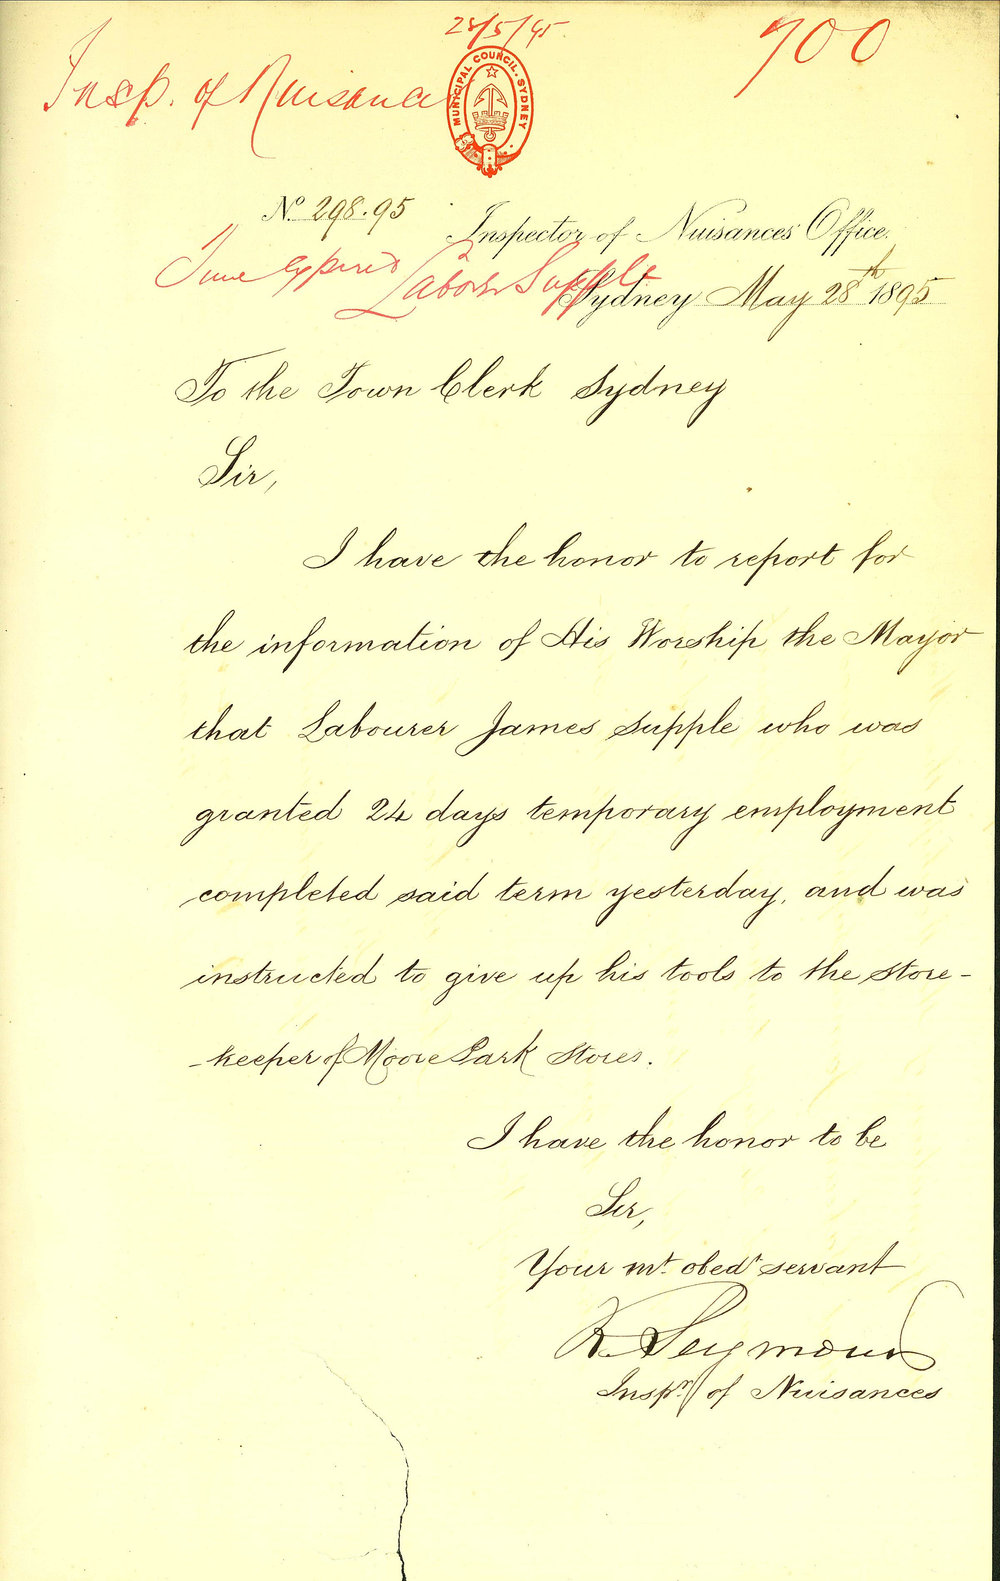 28/5/95
700
Insp. of Nuisances
MUNICIPAL COUNCIL. SYDNEY
No 298.95
Inspector of Nuisances Office.
Time expired
Laborer Supple
Sydney May 28th 1895
To the Town Clerk Sydney
Sir,
I have the honor to report for
the information of His Worship the Mayor
that Labourer James Supple who was
granted 24 days temporary employment
completed said term yesterday, and was
instructed to give up his tools to the store-
-keeper of Moore Park Stores.
I have the honor to be
Sir,
Your mt. obedt servant
R. Seymour
Inspr of Nuisances